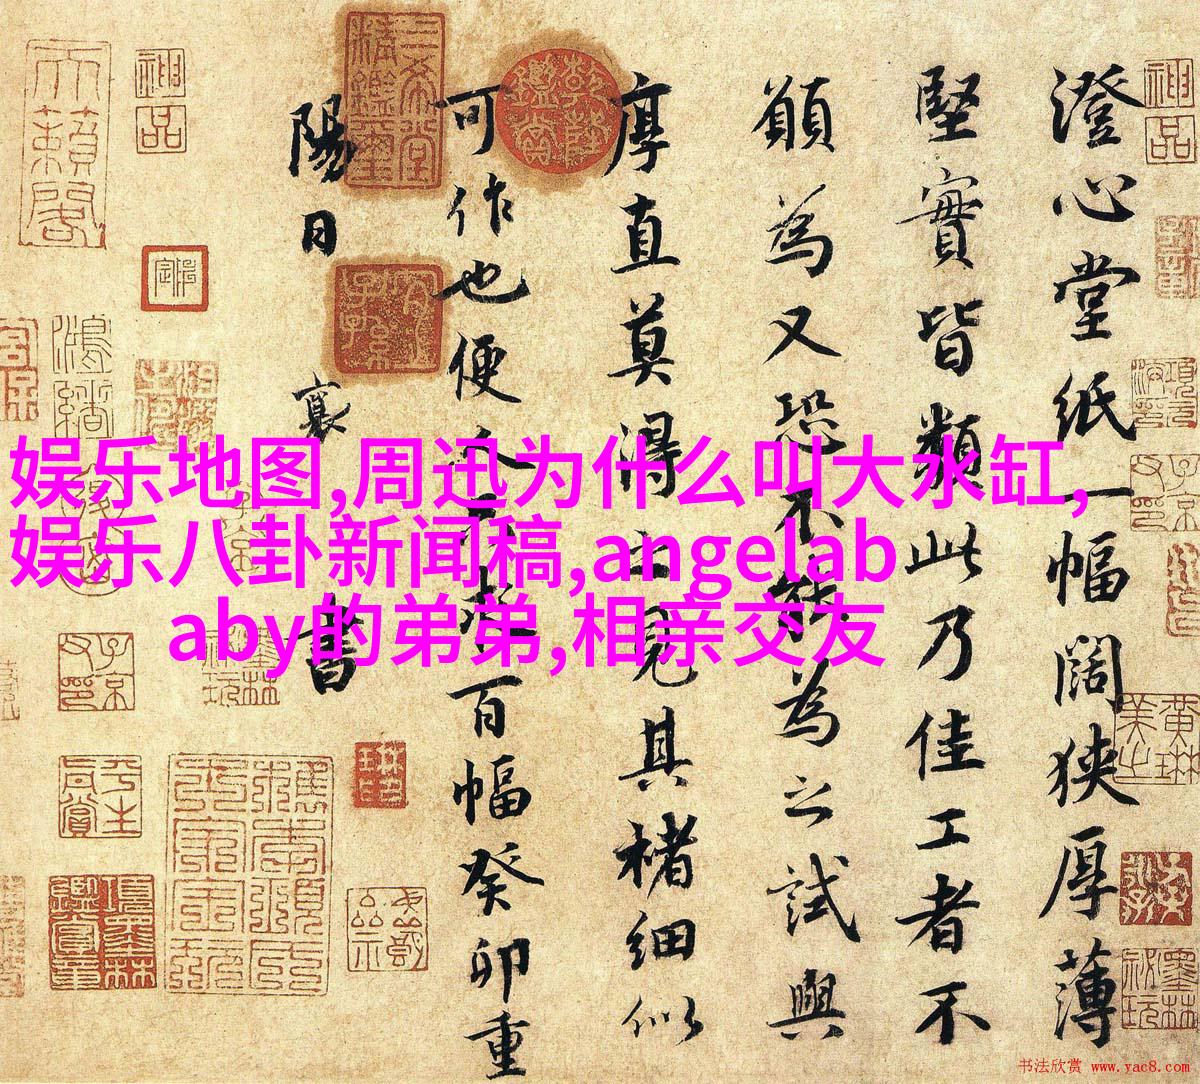 澄心堂紙一幅闊狹厚薄
堅實皆類此乃佳工者不
願為又恐不能為之試與
厚直莫得之見其楮細似
可作也便人只求百幅癸卯重
陽日
襄
書
娱乐地图,周迅为什么叫大水缸,
娱乐八卦新闻稿,angelab
aby的弟弟,相亲交友
神品
神品
天籟閣
三希堂精鑑璽
书法欣赏 www.yac8.com